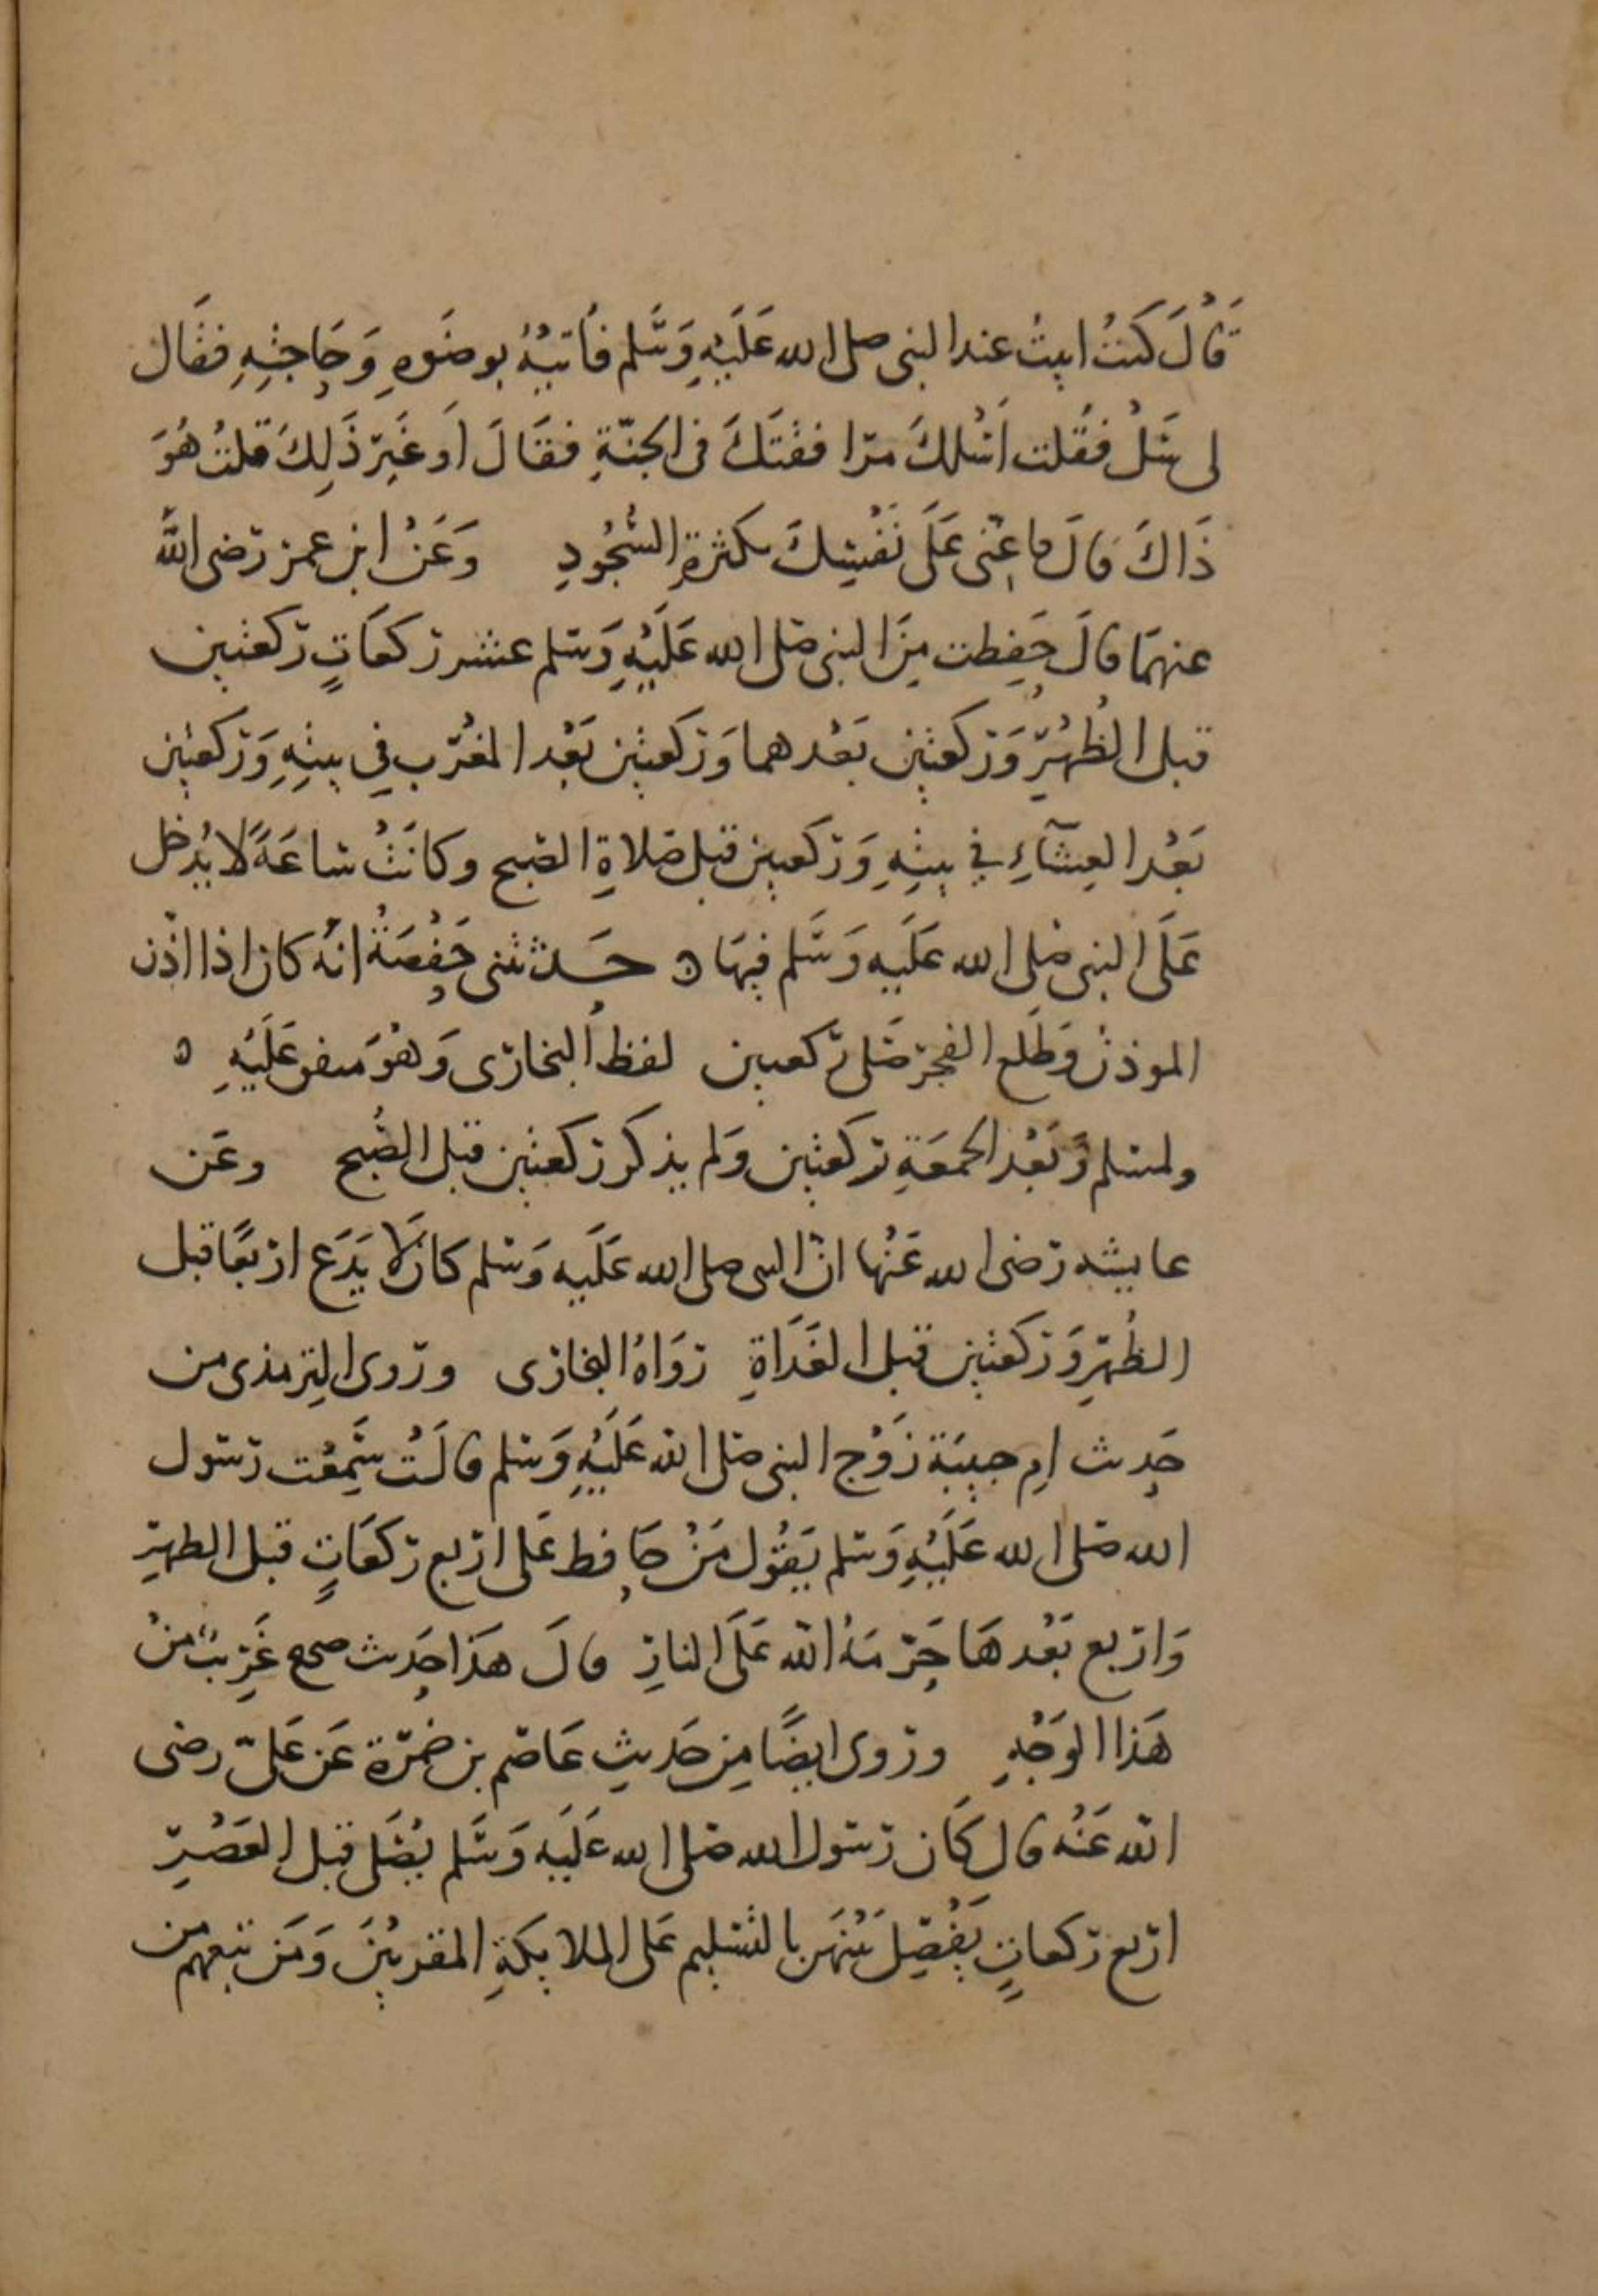 قَالَ كنتُ ابيتُ عند النبى صلى الله عَلَيْهِ وَسَّلم فأتيهُ بوضَوهِ وَحَاجتِهِ فقَال
لى سَلْ فقُلت اَسْلكَ مرافقتَكَ فى الجنّةِ فقَالَ اَوغَيرَ ذَلِكَ قلتُ هُوَ
ذَاكَ قالَ فاعِنّى عَلَى نَفْسِكَ بكثرةِ السُّجُودِ وَعَنْ ابن عمر رضى اللَّه
عنهمَا قالَ حَفِظت مِنَ النبى صَلى الله عَلَيْهِ وَسَلم عشر ركعَاتٍ ركعتين
قبل الظُهْرِ وَركعتين بَعْدهما وَركعتين بَعْد المغرب فِي بيتِهِ وَركعتين
بَعْد العِشَآءِ في بيتِهِ وَركعتين قبل صَلاةِ الصبح وكانَتْ ساعَةً لا يُدخل
عَلَى النبى صَلى الله عَلَيهِ وَسَّلم فيهَا ه حَدثتنى حَفْصَةُ انهُ كان اذا اذّن
الموذنُ وَطَلع الفجر صَلى ركعتين لفظُ البخارى وَهُوَ متفق عَلَيْهِ ه
ولمسلم وَبَعْد الجمعَةِ ركعتين وَلم يذكر ركعتين قبل الصُّبح وعَن
عايشه رضى الله عَنْها انّ النبى صلى الله عَلَيه وَسَلم كان لَا يَدَع اربعًا قبل
الظُهرِ وَركعتين قبل الغَدَاةِ رَوَاهُ البخارى وروى الترمذى من
حَدِيث امِ حبيبَة زَوْج النبى صَلى اللّه عَلَيْهِ وَسَلم قالَتْ سَمِعْت رسول
الله صَلى الله عَلَيْهِ وَسَلم يَقُول مَنْ حَافظ عَلى اربع ركعَاتٍ قبل الظهرِ
وَاربع بَعْدهَا حَرّمَهُ اللّه عَلَى النارِ قالَ هَذا حَدِيث صحيح غَرِيبٌ منْ
هَذا الوَجْهِ وروى ايضًا مِن حَديثِ عَاصم بن ضَمْرَة عَن عَلىّ رضى
اللّه عَنْه قال كَان رسول الله صَلى الله عَلَيه وَسَّلم يُصَلى قبل العَصْرِ
اربع ركعاتٍ يَفْصِلَ بَيْنهَن بالتسْليم عَلى الملايكَةِ المقربيْنَ وَمَن تبعهم من